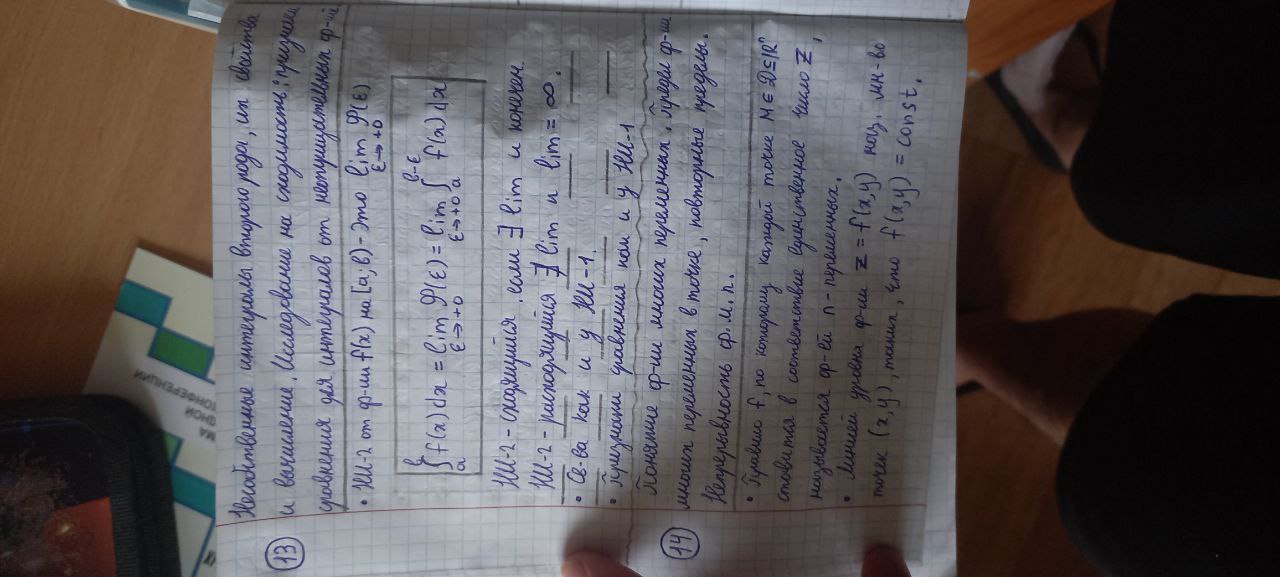 13 Несобственные интегралы второго рода, их свойства
и вычисление. Исследование на сходимость: признаки
сравнения для интегралов от неотрицательных ф-ий
• НИ-2 от ф-ии f(x) на [a; b) - это lim 𝒥(ε)
ε→+0
b b-ε
∫ f(x) dx = lim 𝒥(ε) = lim ∫ f(x) dx
a ε→+0 ε→+0 a
НИ-2 - сходящийся, если ∃ lim и конечен.
НИ-2 - расходящийся ∄ lim и lim = ∞.
• Св-ва как и у НИ-1.
• Признаки сравнения как и у НИ-1
14 Понятие ф-ии многих переменных. Предел ф-ии
многих переменных в точке, повторные пределы.
Непрерывность ф.м.п.
• Правило f, по которому каждой точке M ∈ D ⊆ ℝⁿ
ставится в соответствие единственное число Z,
называется ф-ей n - переменных.
• Линией уровня ф-ии z = f(x,y) наз. мн-во
точек (x,y), таких, что f(x,y) = const.
МА
ДНОЙ
КОНФЕРЕНЦИИ